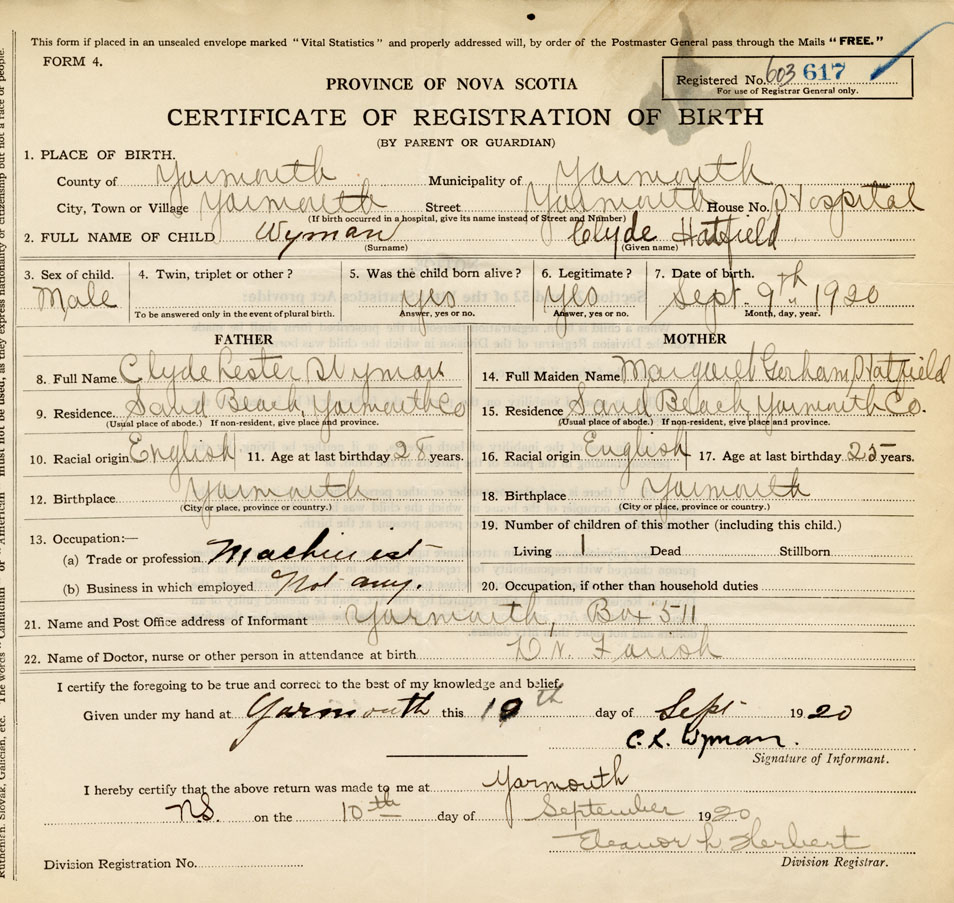 This form if placed in an unsealed envelope marked "Vital Statistics" and properly addressed will, by order of the Postmaster General pass through the Mails "FREE."
FORM 4.
Registered No. 603 617
For use of Registrar General only.
PROVINCE OF NOVA SCOTIA
CERTIFICATE OF REGISTRATION OF BIRTH
(BY PARENT OR GUARDIAN)
1. PLACE OF BIRTH.
County of Yarmouth Municipality of Yarmouth
City, Town or Village Yarmouth Street Yarmouth House No. Hospital
(If birth occurred in a hospital, give its name instead of Street and Number)
2. FULL NAME OF CHILD Wyman Clyde Hatfield
(Surname) (Given name)
3. Sex of child. 4. Twin, triplet or other? 5. Was the child born alive? 6. Legitimate? 7. Date of birth.
Male yes yes Sept. 9th 1920
To be answered only in the event of plural birth. Answer, yes or no. Answer, yes or no. Month, day, year.
FATHER MOTHER
8. Full Name Clyde Lester Wyman 14. Full Maiden Name Margaret Gorham Hatfield
9. Residence. Sand Beach, Yarmouth Co 15. Residence Sand Beach, Yarmouth Co.
(Usual place of abode.) If non-resident, give place and province. (Usual place of abode.) If non-resident, give place and province.
10. Racial origin English 11. Age at last birthday 28 years. 16. Racial origin English 17. Age at last birthday 25 years.
12. Birthplace Yarmouth 18. Birthplace Yarmouth
(City or place, province or country.) (City or place, province or country.)
13. Occupation:— 19. Number of children of this mother (including this child.)
(a) Trade or profession Machinest Living 1 Dead Stillborn
(b) Business in which employed Not any. 20. Occupation, if other than household duties
21. Name and Post Office address of Informant Yarmouth, Box 511
22. Name of Doctor, nurse or other person in attendance at birth Dr. Farish
I certify the foregoing to be true and correct to the best of my knowledge and belief.
Given under my hand at Yarmouth this 10th day of Sept 1920
C. L. Wyman.
Signature of Informant.
I hereby certify that the above return was made to me at Yarmouth
N.S. on the 10th day of September 1920
Eleanor L Herbert
Division Registration No. Division Registrar.
Ruthenian, Slovak, Galician, etc. The words "Canadian" or "American" must not be used, as they express nationality or citizenship but not a race or people.